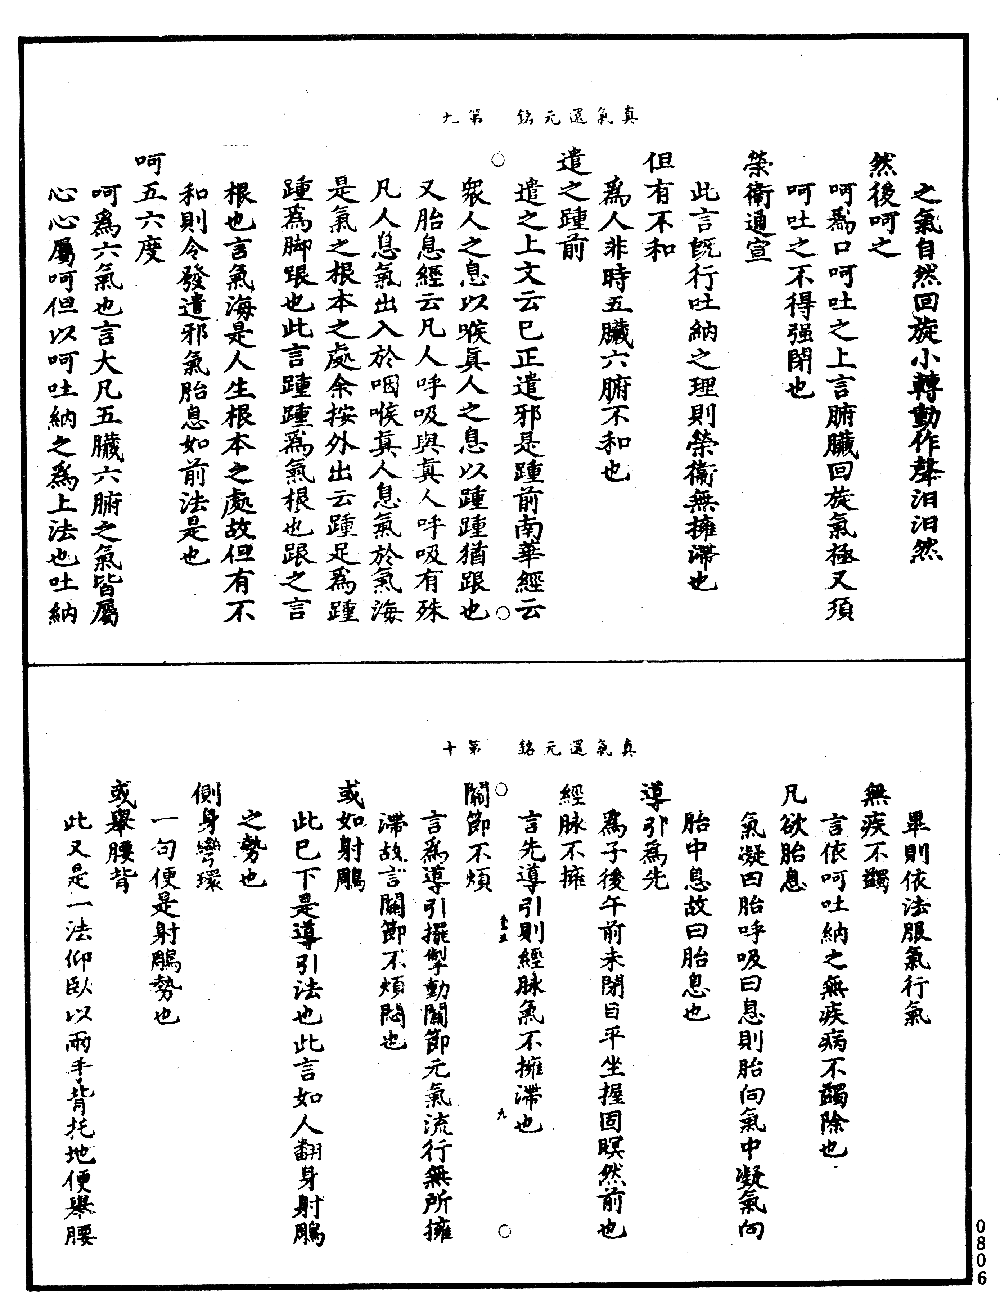 真氣還元銘　第九
之氣自然回旋小轉動作聲汩汩然
然後呵之
呵爲口呵吐之上言腑臟回旋氣極又須
呵吐之不得强閉也
榮衛通宣
此言旣行吐納之理則榮衛無擁滯也
但有不和
爲人非時五臟六腑不和也
遣之踵前
遣之上文云已正遣邪是踵前南華經云
衆人之息以喉真人之息以踵踵猶跟也
又胎息經云凡人呼吸與真人呼吸有殊
凡人息氣出入於咽喉真人息氣於氣海
是氣之根本之處余按外出云踵足爲踵
踵爲脚跟也此言踵踵爲氣根也跟之言
根也言氣海是人生根本之處故但有不
和則令發遣邪氣胎息如前法是也
呵五六度
呵爲六氣也言大凡五臟六腑之氣皆屬
心心屬呵但以呵吐納之爲上法也吐納
真氣還元銘　第十
畢則依法服氣行氣
無疾不蠲
言依呵吐納之無疾病不蠲除也
凡欲胎息
氣凝曰胎呼吸曰息則胎向氣中凝氣向
胎中息故曰胎息也
導引爲先
爲子後午前未閉目平坐握固暝然前也
經脉不擁
言先導引則經脉氣不擁滯也
關節不煩
言爲導引擺掣動關節元氣流行無所擁
滯故言關節不煩悶也
或如射鵰
此已下是導引法也此言如人翻身射鵰
之勢也
側身彎環
一句便是射鵰勢也
或舉腰背
此又是一法仰臥以兩手背托地便舉腰
0806